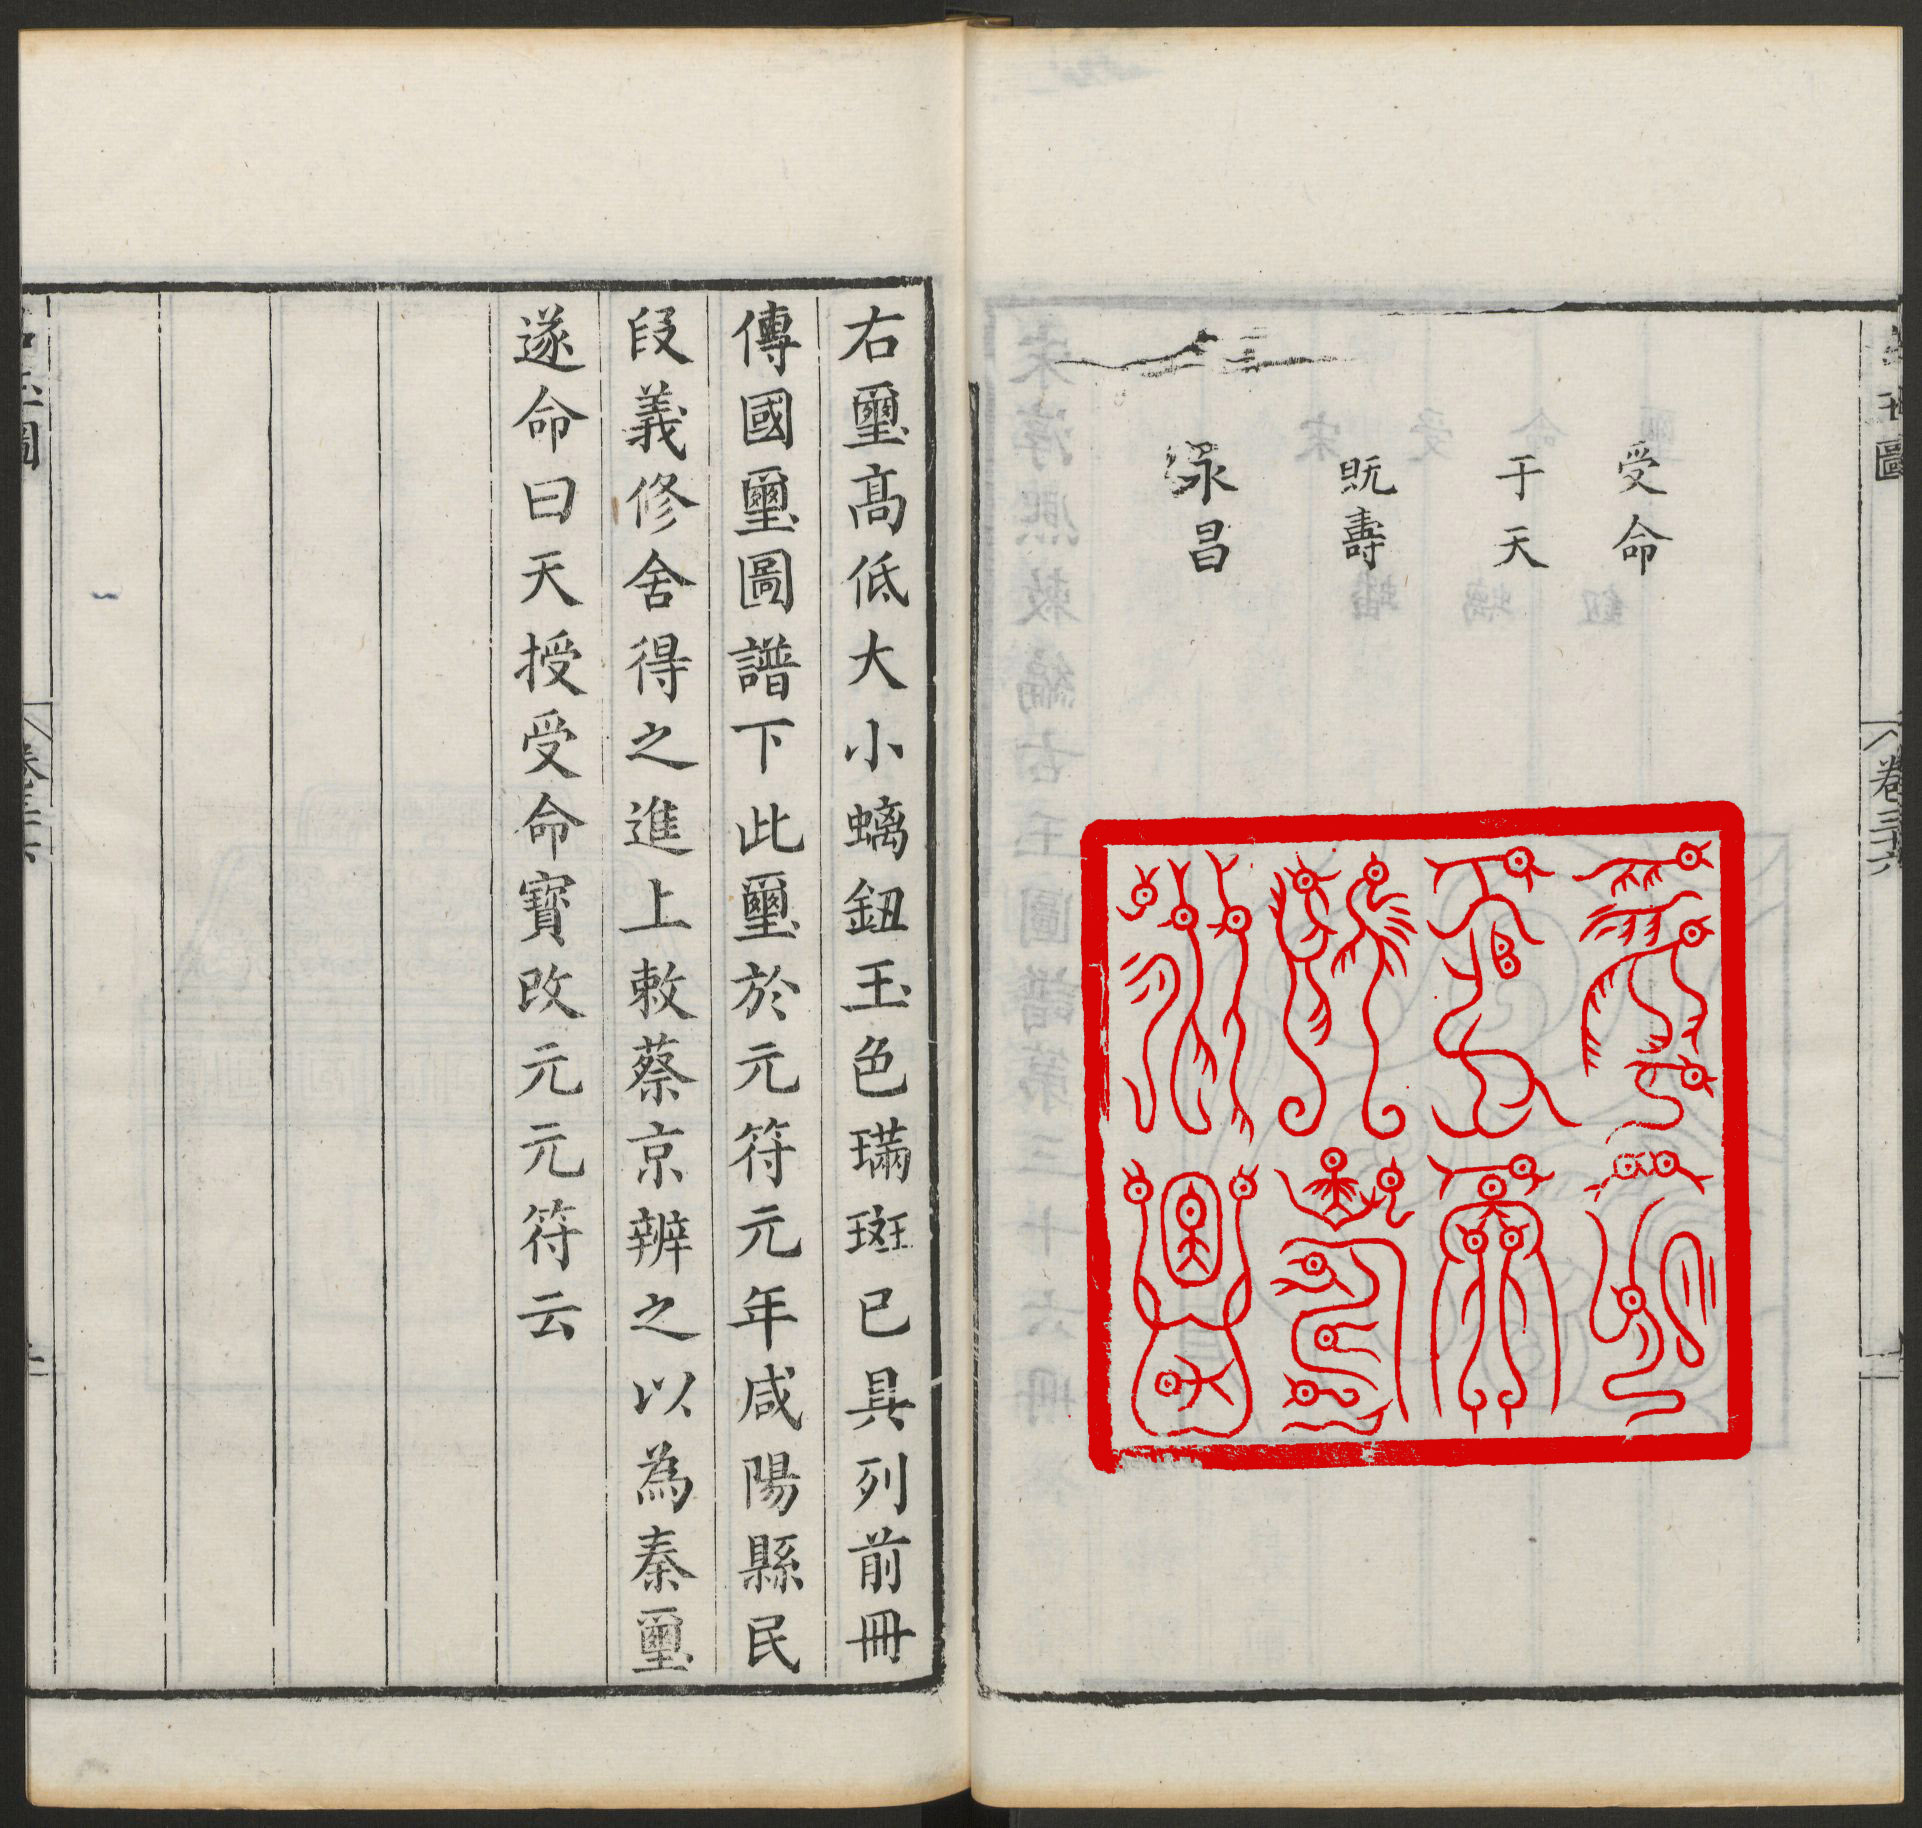 受命
于天
旣壽
永昌
卷三十六
右璽髙低大小螭鈕玉色璊斑已具列前冊
傳國璽圖譜下此璽於元符元年咸陽縣民
段義修舍得之進上敕蔡京辨之以為秦璽
遂命曰天授受命寶改元元符云